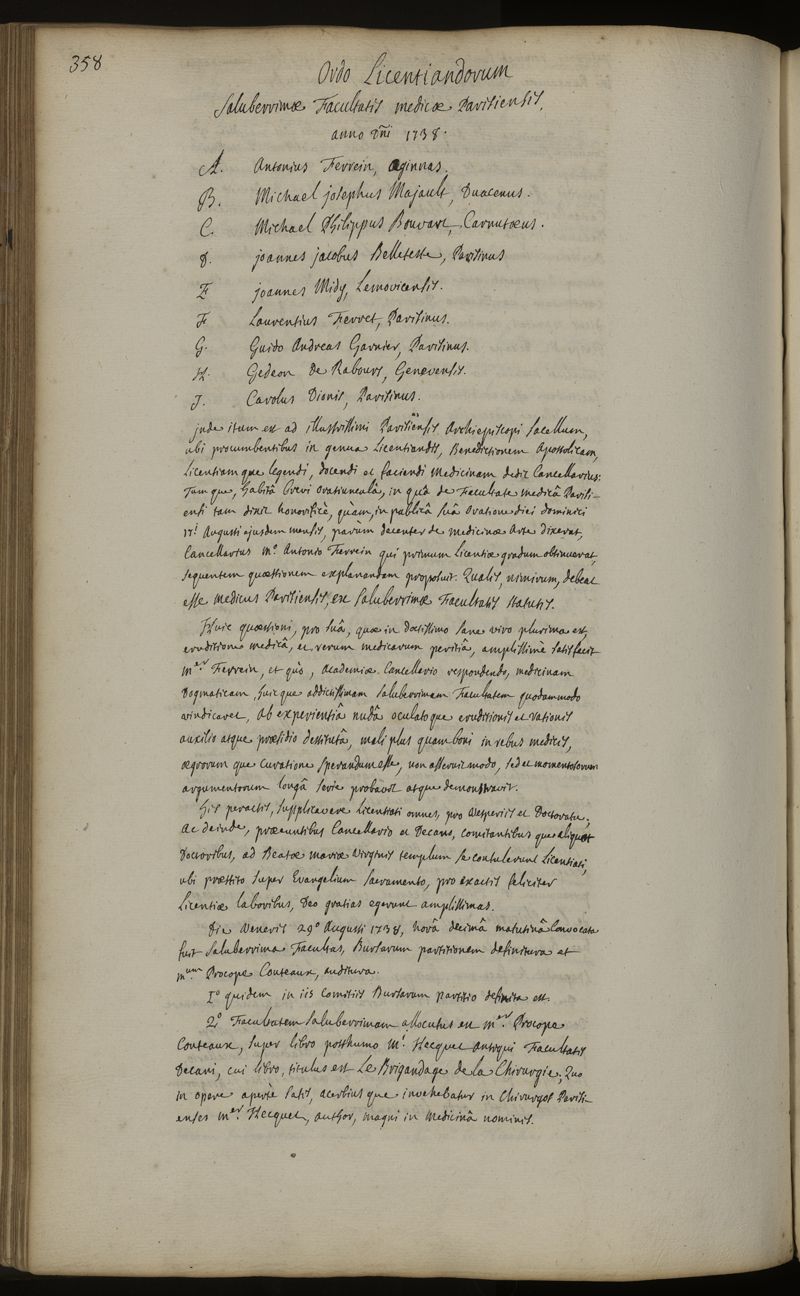 358
Ordo Licentiandorum
Saluberrimæ Facultatis medicæ Parisiensis,
anno Dñi 1738.
A. Antonius Ferrein, aginnas.
B. Michael josephus Majault, Duacenus.
C. Michael Philippus Bouvart, Carnutæus.
D. joannes jacobus Belleteste, Parisinus
E joannes Midy, Lemovicensis.
F Laurentius Ferret, Parisinus.
G. Guido Andreas Garnier, Parisinus.
H. Gedeon de Rabours, Genevensis.
J. Carolus Dionis, Parisinus.
jnde itum est ad illustrissimi Parisiensis Archiepiscopi sacellum,
ubi procumbentibus in genua Licentiandis, Benedictionem Apostolicam,
Licentiamque legendi, docendi et faciendi medicinam dedit Cancellarius:
Tumque, habitâ brevi oratiunculâ, in quâ de Facultate medicâ Parisi-
ensi tam dixit honorificè, quàm, in publicâ suâ oratione diei dominici
17i Augusti ejusdem mensis, parùm decenter de medicinæ Arte dixerat,
Cancellarius mo Antonio Ferrein qui primum Licentiæ gradum obtinuerat,
sequentem quæstionem explanandam proposuit. Qualis, nimirum, debeat
esse medicus Parisiensis, ex saluberrimæ Facultatis statutis.
Huic quæstioni, pro suâ, quæ in doctissimo sane viro plurima est,
eruditione medicâ, et rerum medicarum peritiâ, amplissimè satisfecit
mer Ferrein, et quò, Academiæ Cancellario respondendo, medicinam
Dogmaticam, huicque addictissimam saluberrimam Facultatem quodammodo
vindicaret, Ab experientiâ nudâ oculatoque eruditionis et rationis
auxilio atque præsidio destitutâ, mali plus quam boni in rebus medicis,
ægrorumque curatione sperandum esse, non asseruit modo, sed et momentosorum
argumentorum longâ serie probavit atque demonstravit.
His peractis, supplicavere Licentiati omnes, pro Vesperiis et Doctoratu.
Ac deinde, præeuntibus Cancellario et Decano, comitantibusque aliquot
Doctoribus, ad Beatæ mariæ Virginis templum se contulerunt Licentiati,
ubi præstito super Evangelium sacramento, pro exactis feliciter
Licentiæ laboribus, Deo gratias egerunt amplissimas.
Die Veneris 29o Augusti 1738, horâ decimâ matutinâ Convocata
fuit saluberrima Facultas, Bursarum partitionem definitura et
mum Procope Couteaux, auditura.
Io quidem in iis comitiis Bursarum partitio definita est.
2o Facultatem saluberrimam allocutus est mer Procope
Couteaux, super libro posthumo mi Hecquet antiqui Facultatis
Decani, cui libro, titulus est Le Brigandage de la Chirurgie; Quo
in opere apertè satis, acerbiusque invehebatur in Chirurgos Parisi-
enses mer Hecquet, author, magni in Medicinâ nominis.